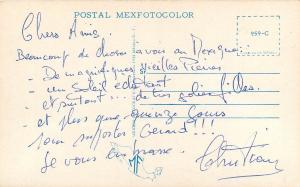 POSTAL MEXFOTOCOLOR
959-C
Chers Amis.
Beaucoup de choses à voir au Mexique
- De magnifiques vieilles Pierres
- un soleil éclatant
- et surtout ... de très jolies filles.
- et plus que quinze jours
pour supporter Gérard !!!
Je vous embrasse.
Christian